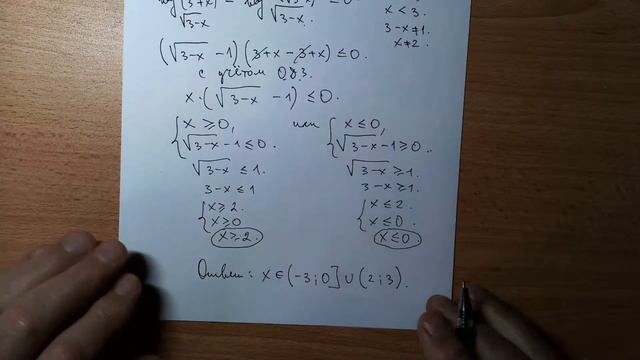 (3+x) -
√3-x
√3-x
≤ 0
x < 3.
3-x≠1.
x≠2.
(√3-x - 1)(3+x-3+x) ≤ 0.
с учётом ОДЗ.
x·(√3-x - 1) ≤ 0.
{ x ≥ 0,
√3-x - 1 ≤ 0.
или
{ x ≤ 0,
√3-x - 1 ≥ 0.
√3-x ≤ 1.
3-x ≤ 1
{ x ≥ 2.
x ≥ 0
x ≥ 2.
√3-x ≥ 1.
3-x ≥ 1.
{ x ≤ 2.
x ≤ 0.
x ≤ 0.
Ответ: x ∈ (-3; 0] ∪ (2; 3).